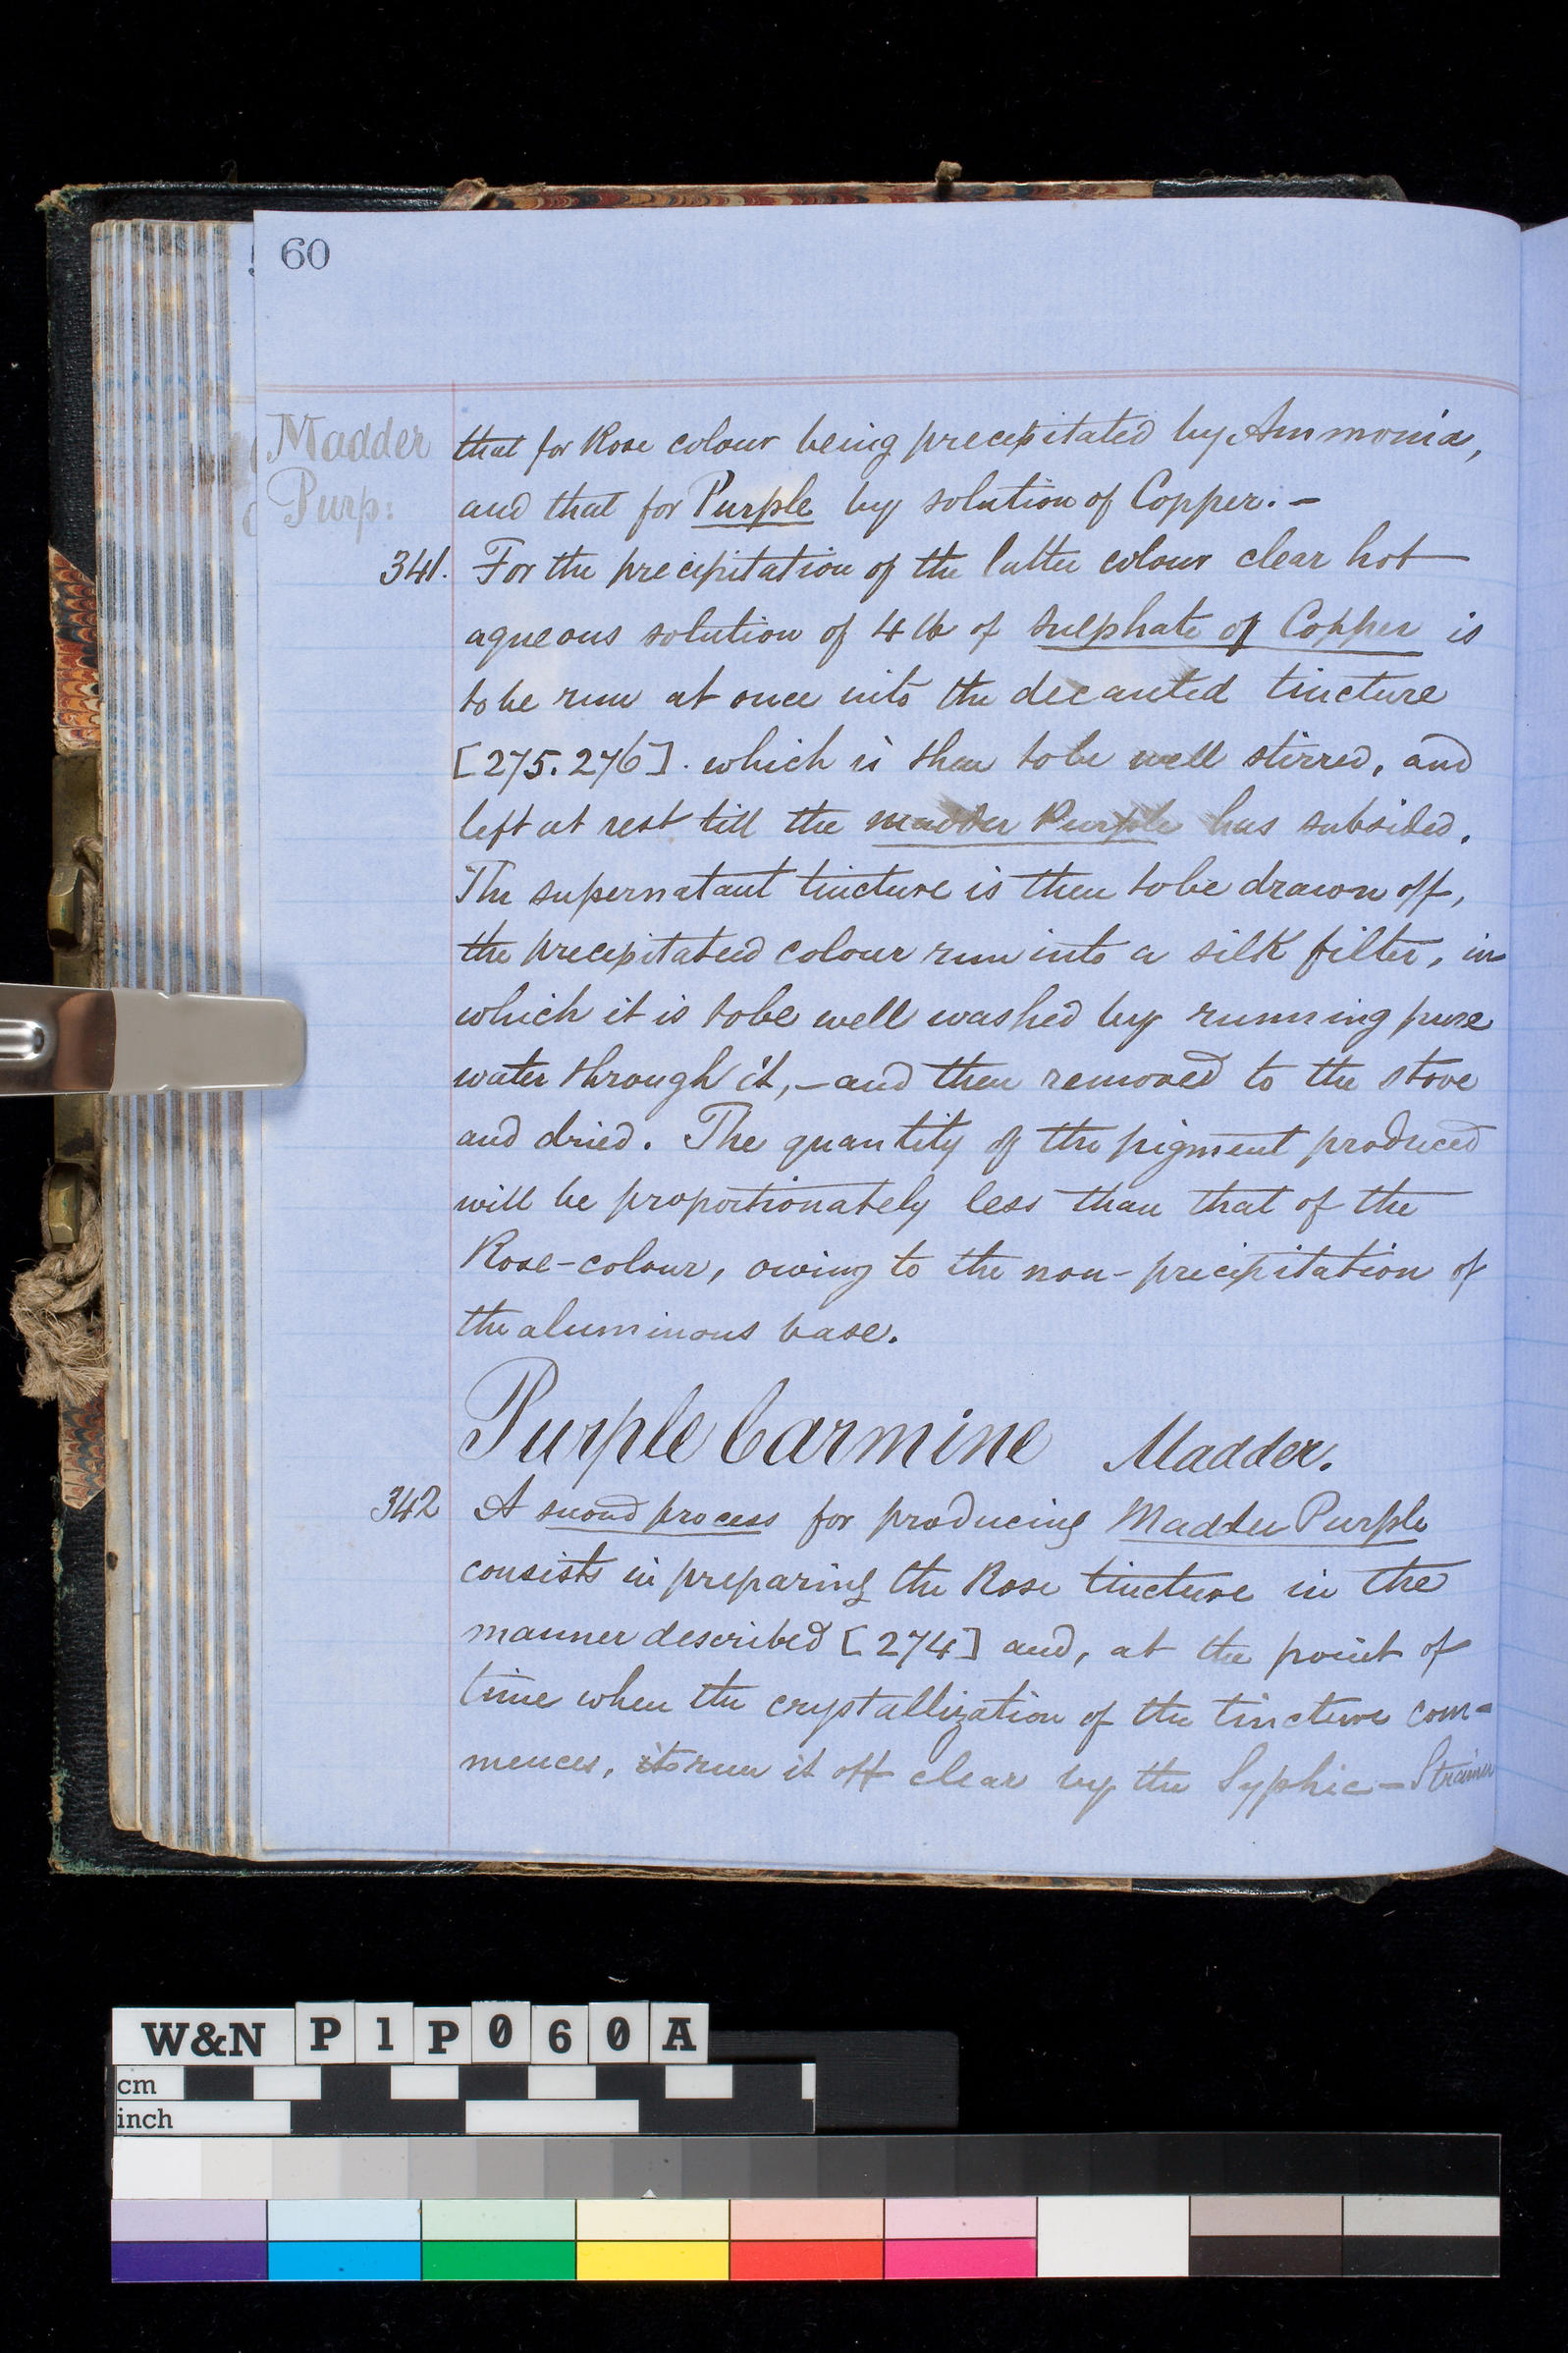 60
Madder
Purp:
that for Rose colour being precipitated by Ammonia,
and that for Purple by solution of Copper. –
341. For the precipitation of the latter colour clear hot
aqueous solution of 4 lb of Sulphate of Copper is
to be run at once into the decanted tincture
[275. 276]. which is then to be well stirred, and
left at rest till the madder Purple has subsided.
The supernatant tincture is then to be drawn off,
the precipitated colour run into a silk filter, in
which it is to be well washed by running pure
water through it, – and then removed to the stove
and dried. The quantity of the pigment produced
will be proportionately less than that of the
Rose-colour, owing to the non-precipitation of
the aluminous base.
Purple Carmine Madder.
342 A second process for producing Madder Purple
consists in preparing the Rose tincture in the
manner described [274] and, at the point of
time when the crystallization of the tincture com=
mences, to run it off clear by the Syphic-Strainer
W&N P1P060A
cm
inch